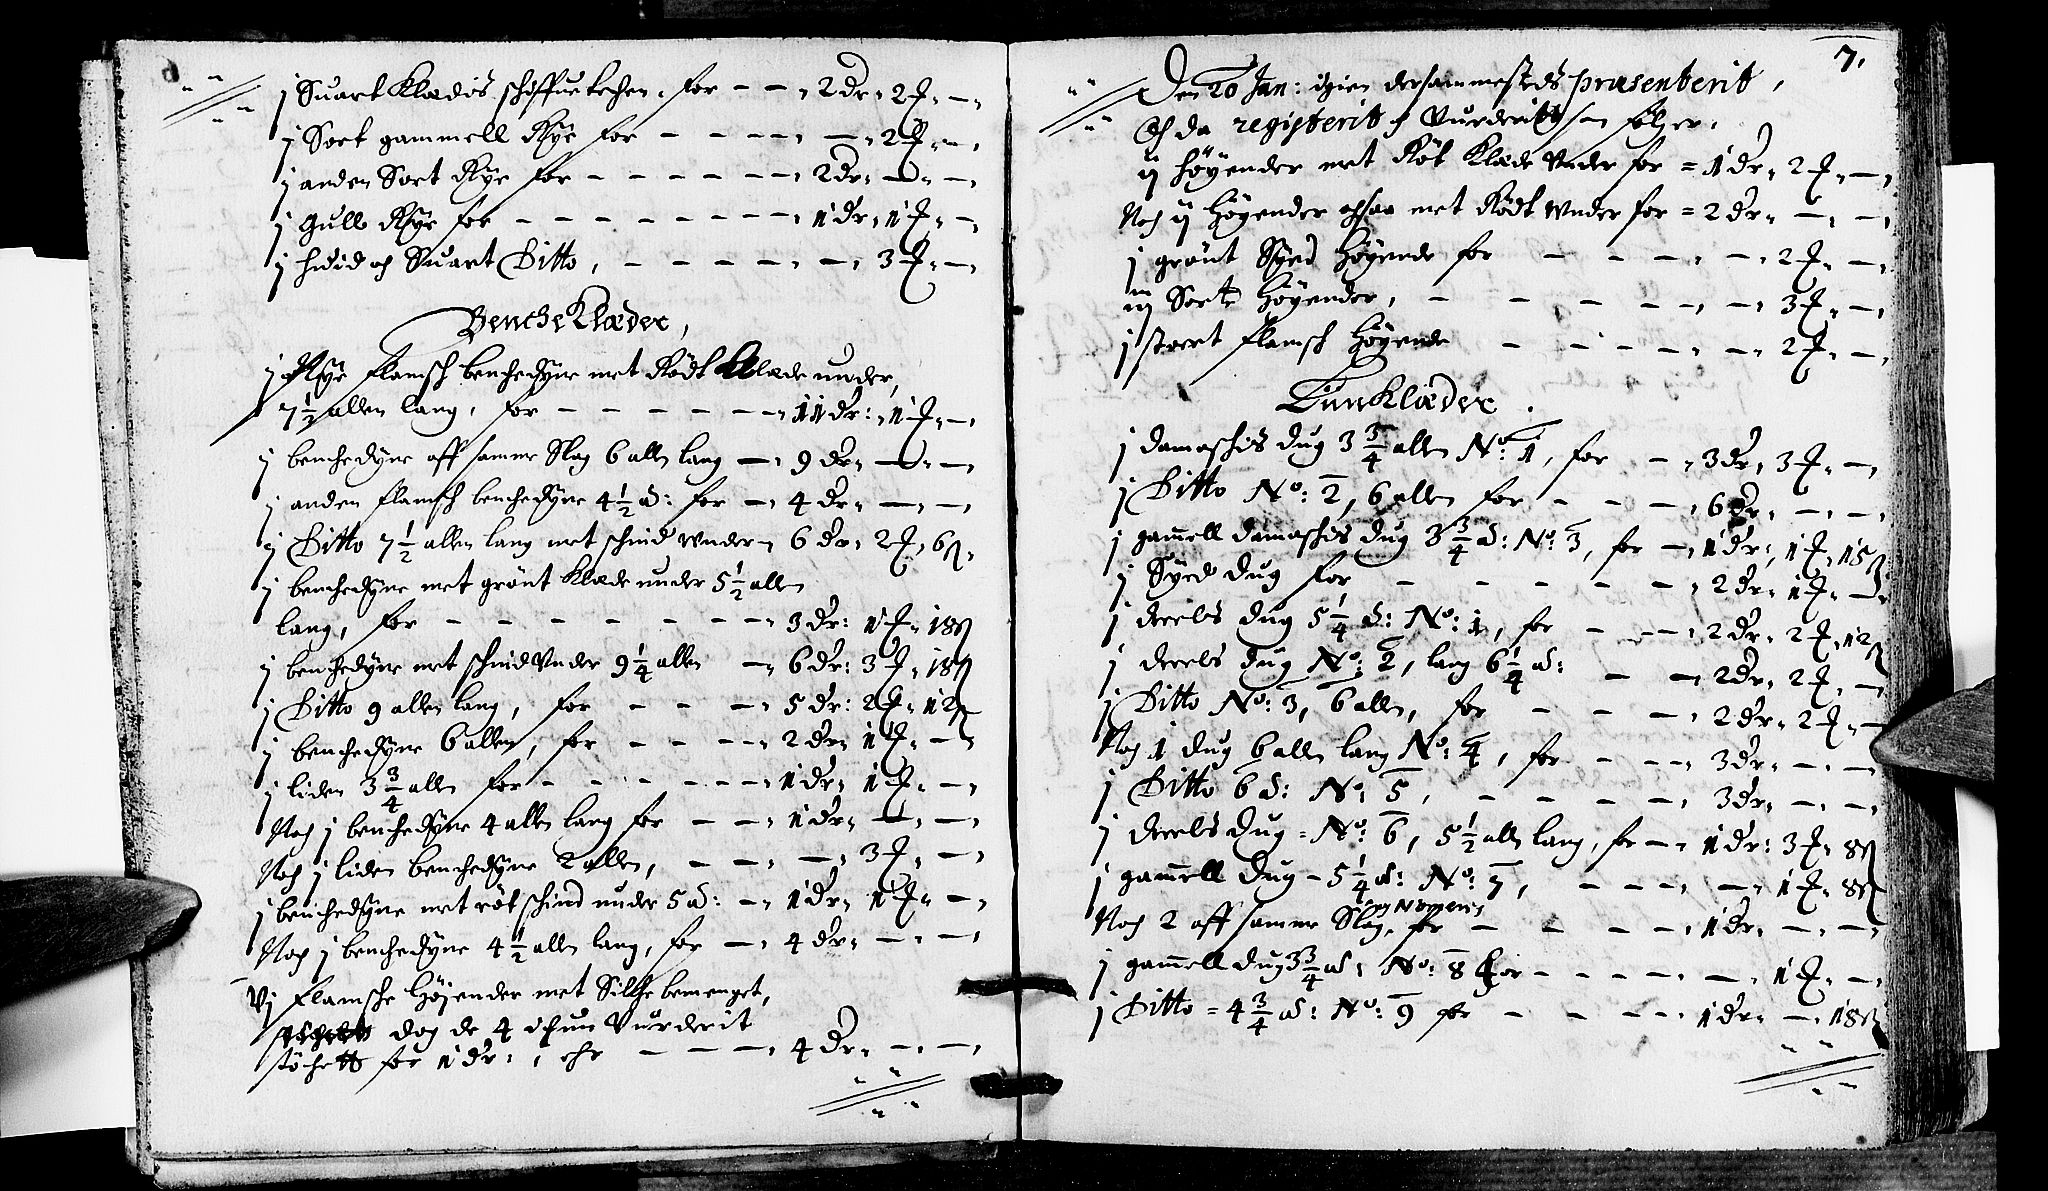 j Suart Klædis schiffue kehen. for - - 2 dr. 2 ₰. -
j Sort gammell Rye for - - - - 2 ₰. -
j anden Sort Rye for - - - - - - 2 dr. - -
j gull Rye for - - - - - - - - 1 dr. 1 ₰. -
j hvid och Suart Ditto, - - - - - - 3 ₰. -
Bencheklæder,
j Rye flamsch benchedyne met Rödt klæde under,
7 1/2 allen lang, for - - - - - - 11 dr: 1 ₰. -
j benchedyne aff samme Slag 6 allen lang - 9 dr. - -
j anden flamsch benchedyne 4 1/2 al: for - 4 dr. - -
j Ditto 7 1/2 allen lang met schind under - 6 dr. 2 ₰. 6 ß.
j benchedyne met grönt Klæde under 5 1/2 allen
lang, for - - - - - - - - 3 dr: 1 ₰. 18 ß
j benchedyne met schind under 9 1/4 allen - 6 dr: 3 ₰. 18 ß
j Ditto 9 allen lang, for - - - 5 dr: 2 ₰. 12 ß
j benchedyne 6 allen, for - - - - 2 dr. 1 ₰. -
j liden 3 3/4 allen for - - - - - - 1 dr. 1 ₰. -
Noch j benchedyne 4 allen lang for - - 1 dr. - -
Noch j liden benchedyne 2 allen, - - - 3 ₰. -
j benchedyne met röt schind under 5 al: - 1 dr. 1 ₰. -
Noch j benchedyne 4 1/2 allen lang, for - 4 dr. - -
vj flamsche Höyender met Silche bemenget,
dog de 4 ichun Vurderit
stöchett for 1 dr:, ehr - - - 4 dr. - -
7.
Den 20 Jan: igien dersammesteds præsenterit,
Och da registerit och Vurderitt som fölger.
ij höyender met Röt Klæde Under for = 1 dr. 2 ₰. -
Noch ij höyender ochsaa met Rödt under for = 2 dr. - -
j grönt Syed Höyende for - - - - - 2 ₰. -
iij Sorte Höyender, - - - - - - 3 ₰. -
j stoert flamsch Höyende - - - - - 2 ₰. -
Linklæder.
j damaschis dug 3 3/4 allen No: 1, for - 3 dr. 3 ₰. -
j Ditto No: 2, 6 allen for - - - - 6 dr. - -
j gamell damaschis dug 3 3/4 al: No: 3, for - 1 dr: 1 ₰. 15 ß
j Syed dug for - - - - - - 2 dr. 1 ₰. -
j dreels dug 5 1/4 al: No: 1, for - - - 2 dr. 2 ₰. 12 ß
j dreels dug No: 2, lang 6 1/4 al: - - 2 dr. 2 ₰. -
j Ditto No: 3, 6 allen, for - - - - 2 dr. 2 ₰. -
Noch 1 dug 6 allen lang No: 4, for - - - 3 dr. - -
j Ditto 6 al: No: 5, - - - - - 3 dr. - -
j dreels dug = No: 6, 5 1/2 allen lang, for - 1 dr: 3 ₰. 8 ß
j gamell dug - 5 1/4 al: No: 7, - - - - 1 ₰. 8 ß
Noch 2 aff samme Slag, for - - - - 1 dr. - -
j gamell dug 3 3/4 al: No: 8 for - - - - - 1 ₰. -
j Ditto = 4 3/4 al: No: 9 for - - - - 1 dr. - 18 ß